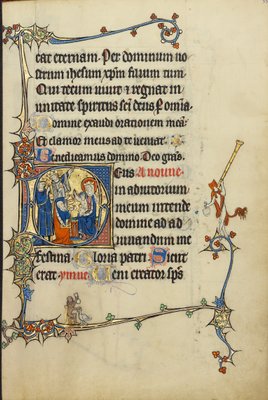 eat eternam. Per dominum no
strum ihesum xpm filium tuum
Qui tecum uiuit 7 regnat in
unitate spiritus sci deus P omia
Domine exaudi orationem mea
Et clamor meus ad te ueniat.
Benedicamus domino Deo gras
Deus A nonne
in adiutorium
meum intende
domine ad ad
iuuandum me
festina Gloria patri Sicut
erat ymne Ueni creator sps